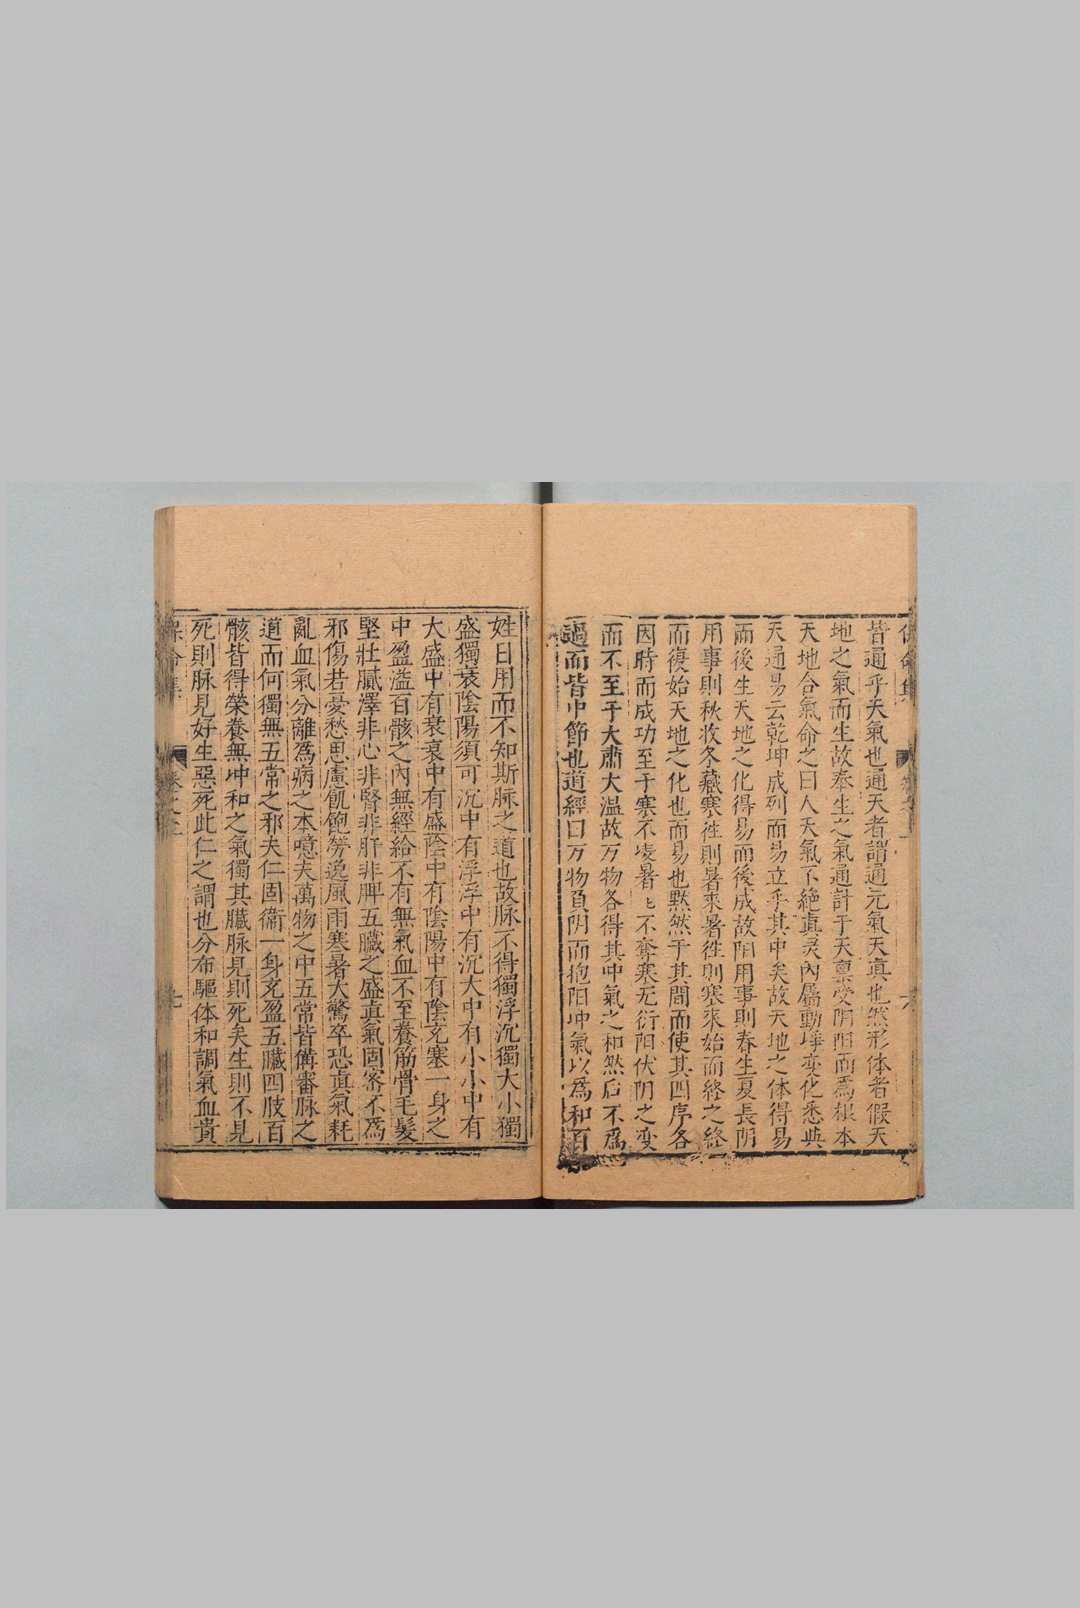 皆通乎天氣也通天者謂通元氣天真也然形体者假天
地之氣而生故奉生之氣通計于天禀受阴阳而為根本
天地合氣命之曰人天氣不絶真灵內属動静变化悉與
天通易云乾坤成列而易立乎其中矣故天地之体得易
而後生天地之化得易而後成故阳用事則春生夏長阴
用事則秋收冬藏寒徃則暑来暑徃則寒来始而終之終
而復始天地之化也而易也黙然于其間而使其四序各
因時而成功至于寒不凌暑〻不奪寒无衍阳伏阴之变
而不至于大肅大温故万物各得其中氣之和然后不爲
過而皆中節也道經曰万物負阴而抱阳冲氣以為和百
姓日用而不知斯脉之道也故脉不得獨浮沉獨大小獨
盛獨衰陰陽須可沉中有浮浮中有沉大中有小小中有
大盛中有衰衰中有盛陰中有陰陽中有陰充塞一身之
中盈溢百骸之內無經給不有無氣血不至養筋骨毛髮
堅壯膩澤非心非腎非肝非脾五臟之盛真氣固密不為
邪傷若憂愁思慮飢飽勞逸風雨寒暑大驚卒恐真氣耗
亂血氣分離為病之本噫夫萬物之中五常皆備審脉之
道而何獨無五常之邪夫仁固衛一身充盈五臟四肢百
骸皆得榮養無冲和之氣獨其臟脉見則死矣生則不見
死則脉見好生惡死此仁之謂也分布驅体和調氣血貴
保命集
卷之上
七